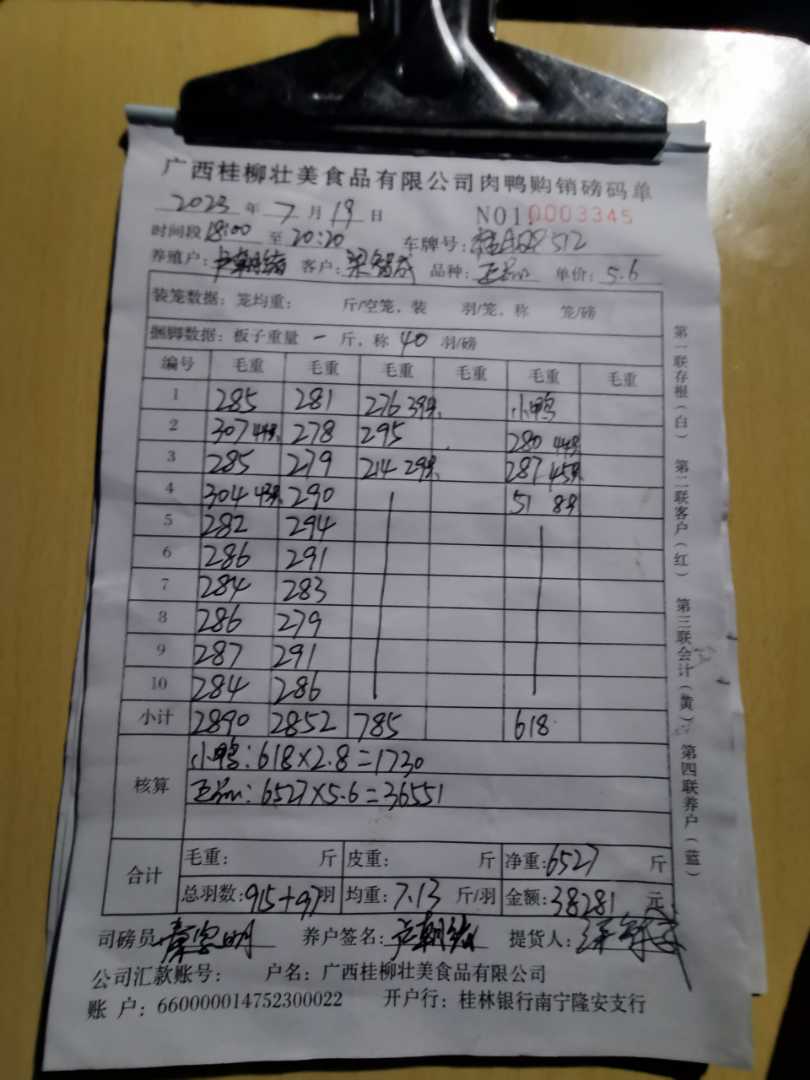 广西桂柳壮美食品有限公司肉鸭购销磅码单
2023 年 7 月 19 日 NO1:0003345
时间段 18:00 至 20:20 车牌号: 512
养殖户: 客户: 梁智成 品种: 单价: 5.6
装笼数据: 笼均重: 斤/空笼, 装 羽/笼, 称 笼/磅
捆脚数据: 板子重量 一 斤, 称 40 羽/磅
编号 毛重 毛重 毛重 毛重 毛重 毛重
1 285 281 276 39只 小鸭
2 307 44只 278 295 280 44只
3 285 279 214 29只 287 45只
4 304 43只 290 51 8只
5 282 294
6 286 291
7 284 283
8 286 279
9 287 291
10 284 286
小计 2890 2852 785 618
核算 小鸭: 618×2.8=1730
: 6527×5.6=36551
合计 毛重: 斤 皮重: 斤 净重: 6527 斤
总羽数: 915+97 羽 均重: 7.13 斤/羽 金额: 38281 元
司磅员 养户签名: 提货人:
公司汇款账号: 户名: 广西桂柳壮美食品有限公司
账 户: 660000014752300022 开户行: 桂林银行南宁隆安支行
第一联存根(白) 第二联客户(红) 第三联会计(黄) 第四联养户(蓝)